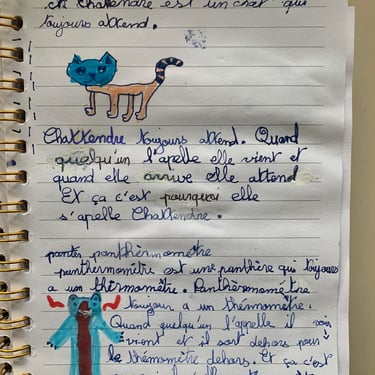 Chattendre est un chat qui
toujours attend.
Chattendre toujours attend. Quand
quelqu'un l'apelle elle vient et
quand elle arrive elle attend
Et ça c'est pourquoi elle
s'apelle Chattendre.
pantes panthèrmomètre
panthermomètre est une panthère qui toujours
a un thérmomètre. Panthèrmomètre
toujour a un thémomètre.
Quand quelqu'un l'appelle il
vient et il sort dehors pour
le thémomètre dehors. Et ça c'est